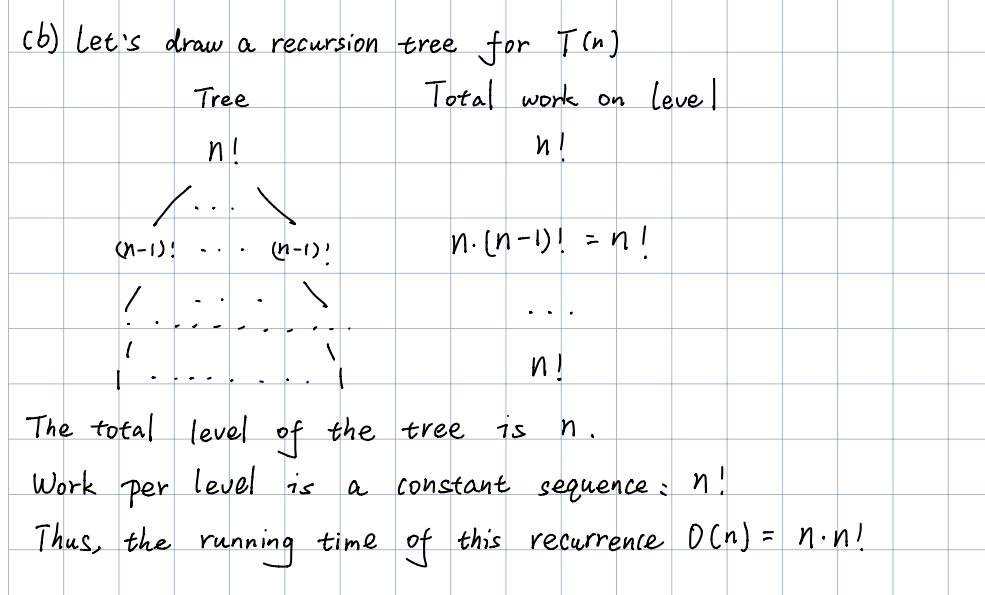 (b) Let's draw a recursion tree for T(n)
Tree Total work on level
n! n!
...
(n-1)! ... (n-1)! n·(n-1)! = n!
...
...
n!
1 ........ 1
The total level of the tree is n.
Work per level is a constant sequence: n!
Thus, the running time of this recurrence O(n) = n·n!